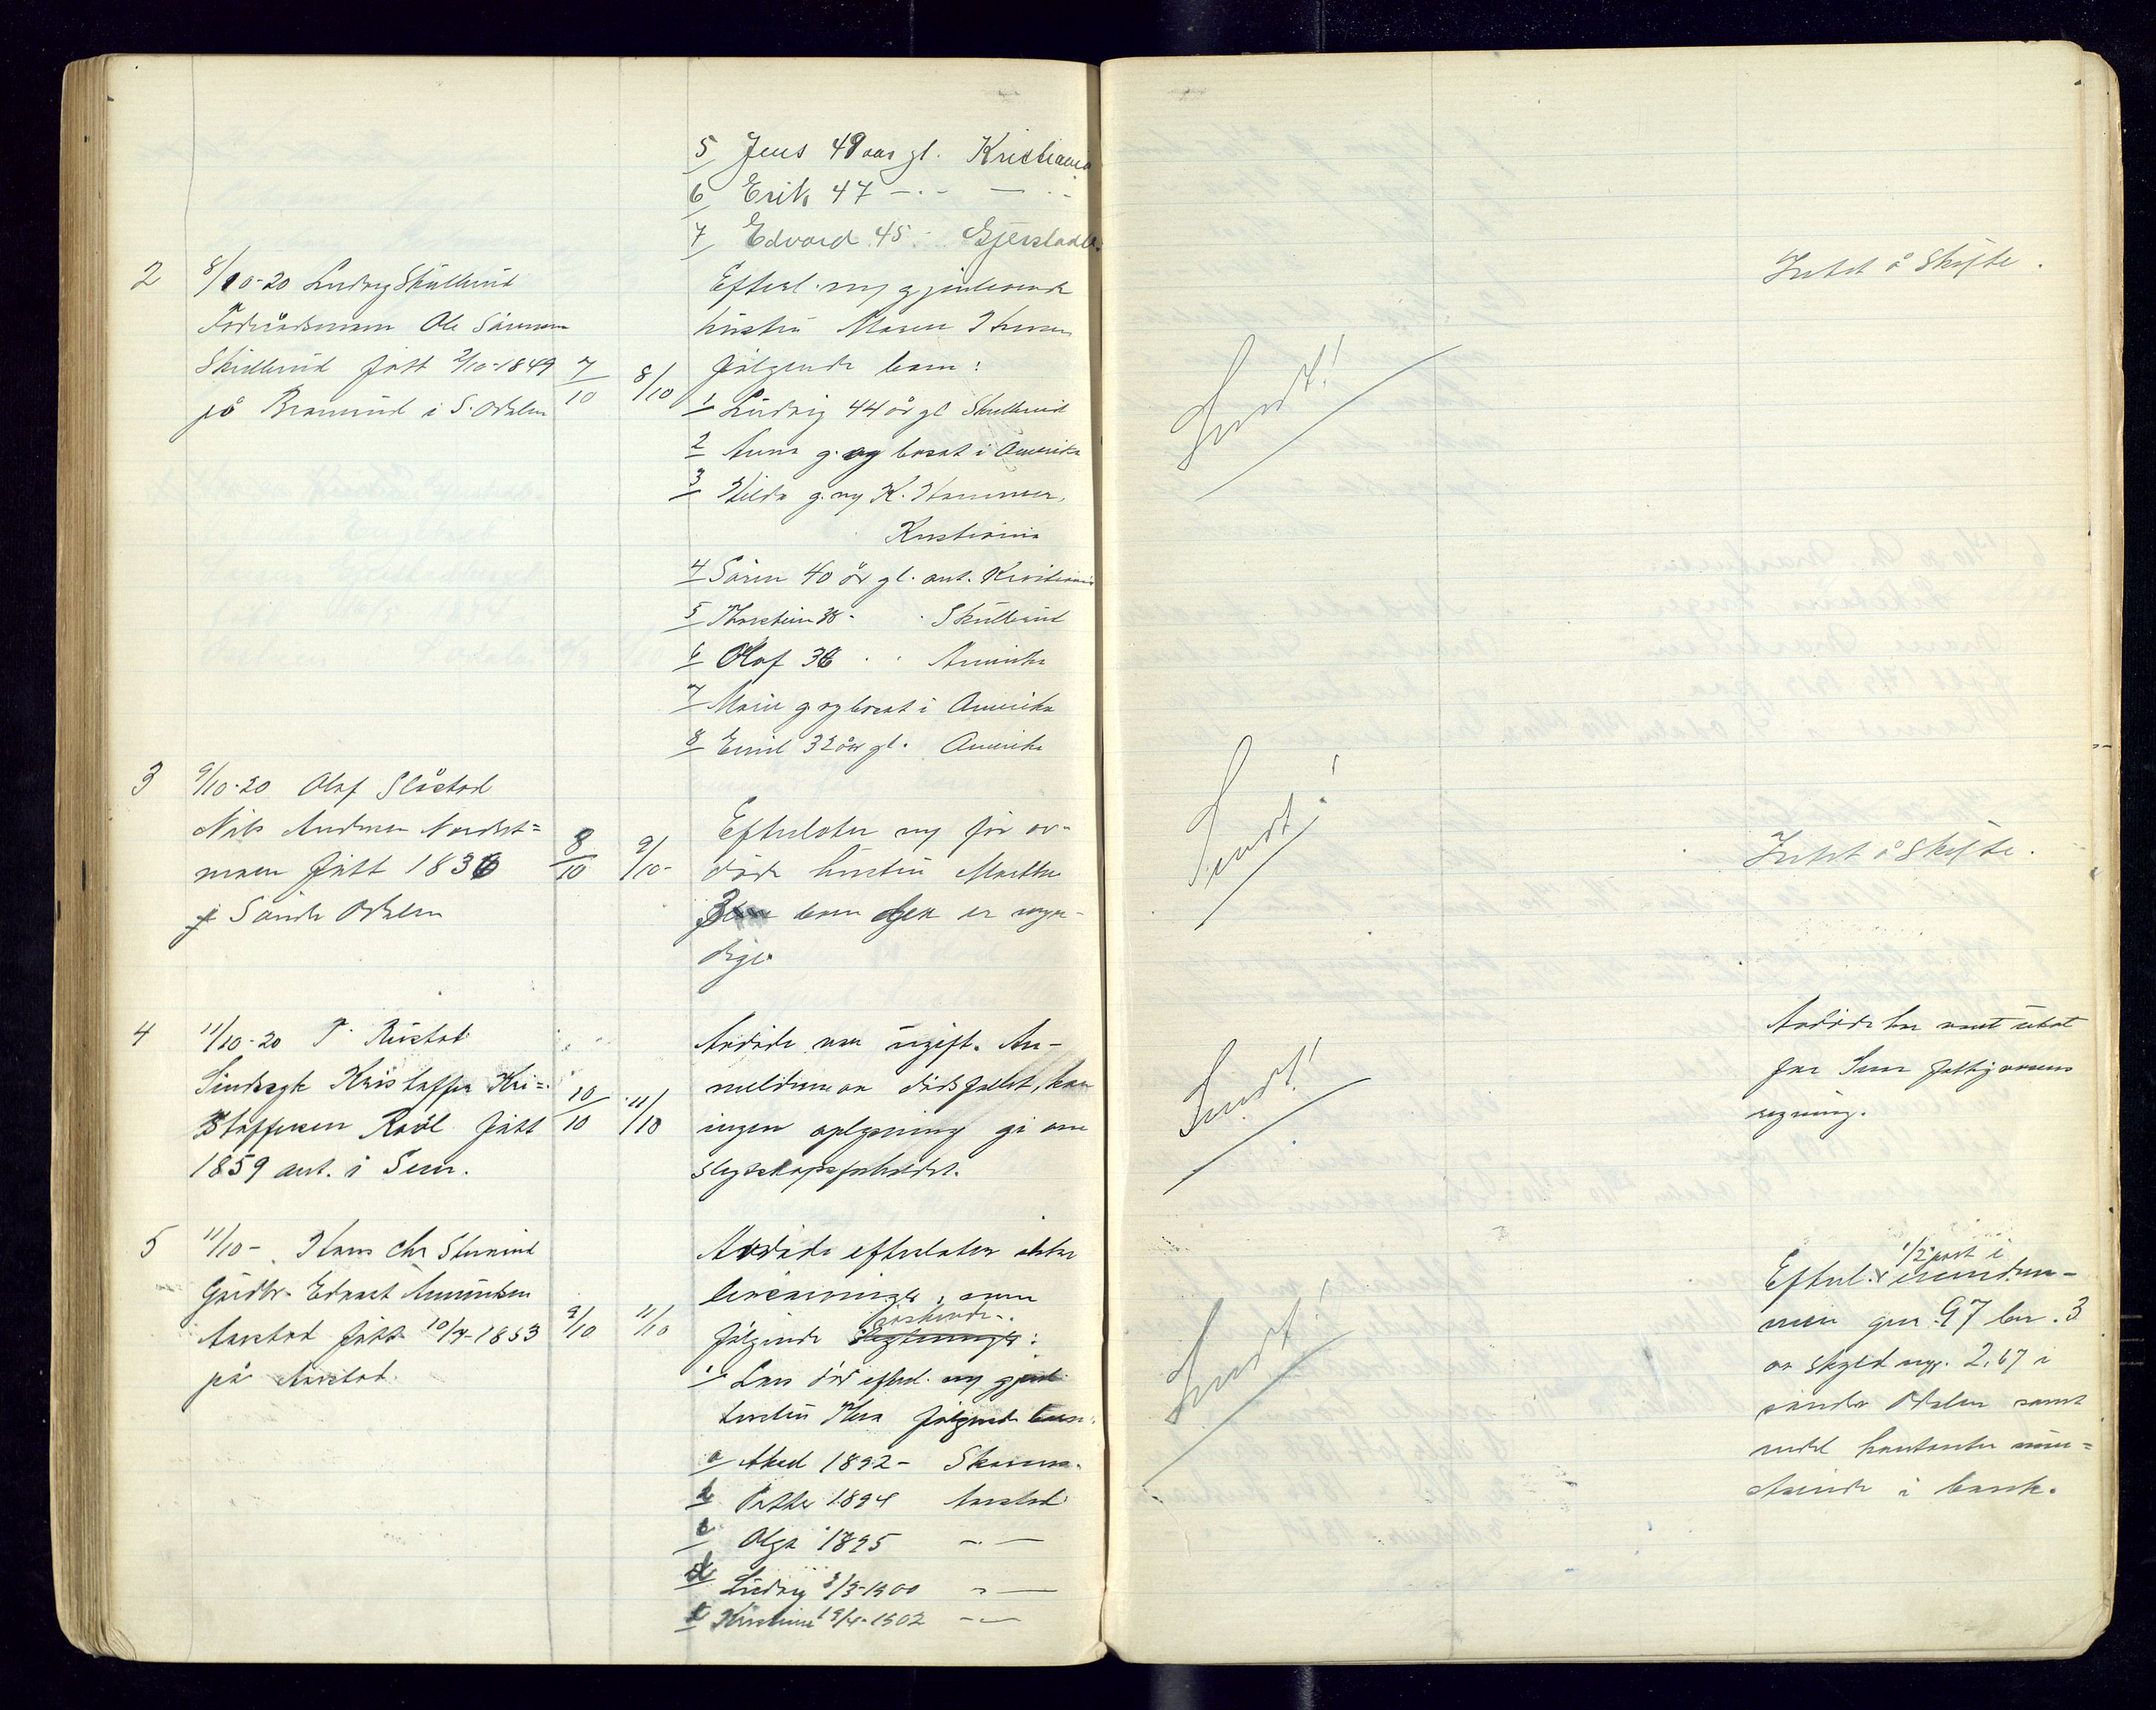 5 Jens 49 aar gl. Kristiania
6 Erik 47 -.- — . -
7 Edvard 45 - Gjerstadb.
2 8/10-20 Ludvig Skullerud
Foderådsmann Ole Sörensen
Skullerud født 2/10-1849
på Bramrud i S. Odalen
7/10
8/10
Efterl. m/ gjenlevende
hustru Maren Hansen
følgende barn:
1 Ludvig 44 år gl Skullerud
2 Anna g. og bosat i Amerika
3 Hilda g. m/ K. Hammer,
Kristiania
4 Sören 40 år gl. ant. Kristiania
5 Thorstein 38 - . Skullerud
6 Olaf 36 . . Amerika
7 Marie g. og bosat i Amerika
8 Emil 32 år gl. Amerika
Sendt!
Intet å skifte.
3 9/10-20 Olaf Slåstad
Nils Andersen Nordst=
moen født 1836
i Søndre Odalen
8/10
9/10-
Efterlater m/ før av-
døde hustru Marthe
3 barn der er myn-
dige.
Sendt!
Intet å skifte.
4 11/10-20 P. Rustad
Sindssyk Kristoffer Kri=
stoffersen Raul født
1859 ant. i Sem.
10/10
11/10
Avdøde var ugift. An-
melderen av dødsfallet, kan
ingen oplysning gi om
slegtskapsforholdet.
Sendt!
Avdøde har vært utsat
for Sem fattigvæsens
regning.
5 11/10- Hans Chr Stenrud
Gårdbr. Edvart Amundsen
Aarstad født 10/4-1853
på Aarstad.
9/10
11/10
Avdøde efterlater ikke
livsarvinger, men
søskende.
følgende slegtninger:
1 Lars död efterl. m/ gjenl.
hustru Thea følgende barn:
a Aksel 1892 - Skarnes.
b Petter 1894 Aarstad
c Olga 1895 -.—
d Ludvig 3/3-1900 -.—
e Kristine 19/4-1902 -.—
Sendt!
1/2 part i
Efterl. eiendom-
men gnr. 97 bnr. 3
av skyld m/ 2,67 i
søndre Odalen samt
endel kontanter inne=
stående i bank.